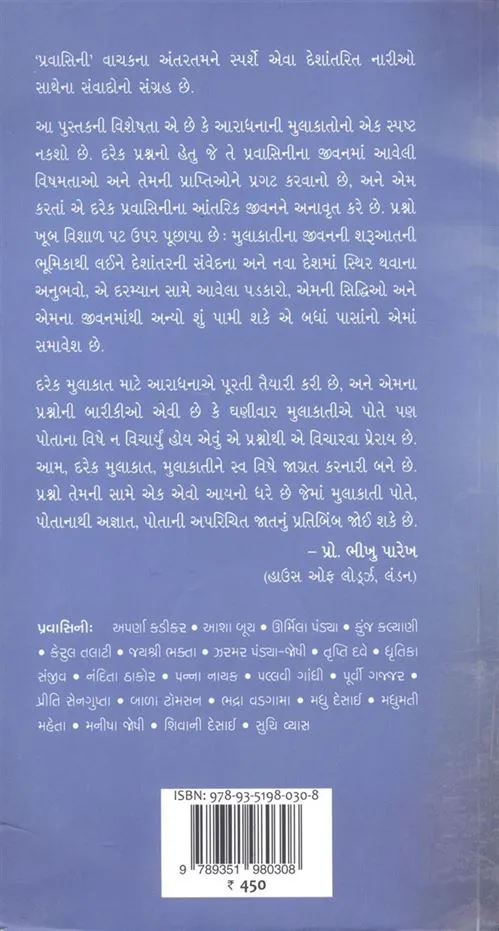 'પ્રવાસિની' વાચકના અંતરતમને સ્પર્શે એવા દેશાંતરિત નારીઓ
સાથેના સંવાદોનો સંગ્રહ છે.
આ પુસ્તકની વિશેષતા એ છે કે આરાધનાની મુલાકાતોનો એક સ્પષ્ટ
નકશો છે. દરેક પ્રશ્નનો હેતુ જે તે પ્રવાસિનીના જીવનમાં આવેલી
વિષમતાઓ અને તેમની પ્રાપ્તિઓને પ્રગટ કરવાનો છે, અને એમ
કરતાં એ દરેક પ્રવાસિનીના આંતરિક જીવનને અનાવૃત કરે છે. પ્રશ્નો
ખૂબ વિશાળ પટ ઉપર પૂછાયા છે : મુલાકાતીના જીવનની શરૂઆતની
ભૂમિકાથી લઈને દેશાંતરની સંવેદના અને નવા દેશમાં સ્થિર થવાના
અનુભવો, એ દરમ્યાન સામે આવેલા પડકારો, એમની સિદ્ધિઓ અને
એમના જીવનમાંથી અન્યો શું પામી શકે એ બધાં પાસાંનો એમાં
સમાવેશ છે.
દરેક મુલાકાત માટે આરાધનાએ પૂરતી તૈયારી કરી છે, અને એમના
પ્રશ્નોની બારીકીઓ એવી છે કે ઘણીવાર મુલાકાતીએ પોતે પણ
પોતાના વિષે ન વિચાર્યું હોય એવું એ પ્રશ્નોથી એ વિચારવા પ્રેરાય છે.
આમ, દરેક મુલાકાત, મુલાકાતીને સ્વ વિષે જાગ્રત કરનારી બને છે.
પ્રશ્નો તેમની સામે એક એવો આયનો ધરે છે જેમાં મુલાકાતી પોતે,
પોતાનાથી અજ્ઞાત, પોતાની અપરિચિત જાતનું પ્રતિબિંબ જોઈ શકે છે.
– પ્રો. ભીખુ પારેખ
(હાઉસ ઓફ લોર્ડ્ઝ, લંડન)
પ્રવાસિની: અપર્ણા કડીકર • આશા બૂચ • ઊર્મિલા પંડ્યા • કુંજ કલ્યાણી
• કેરુલ તલાટી • જયશ્રી ભક્તા • ઝરમર પંડ્યા-જોષી • તૃપ્તિ દવે • ધૃતિકા
સંજીવ • નંદિતા ઠાકોર • પન્ના નાયક • પલ્લવી ગાંધી • પૂર્વી ગજ્જર •
પ્રીતિ સેનગુપ્તા • બાળા ટોમસન • ભદ્રા વડગામા • મધુ દેસાઈ • મધુમતી
મહેતા • મનીષા જોષી • શિવાની દેસાઈ • સુચિ વ્યાસ
ISBN: 978-93-5198-030-8
9 789351 980308
₹ 450